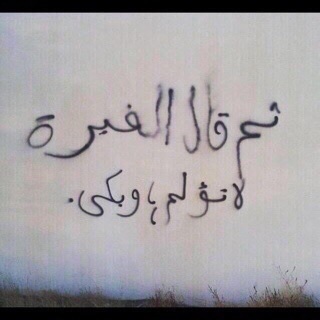 ثم قال الغيرة
لا تؤلم، وبكى.